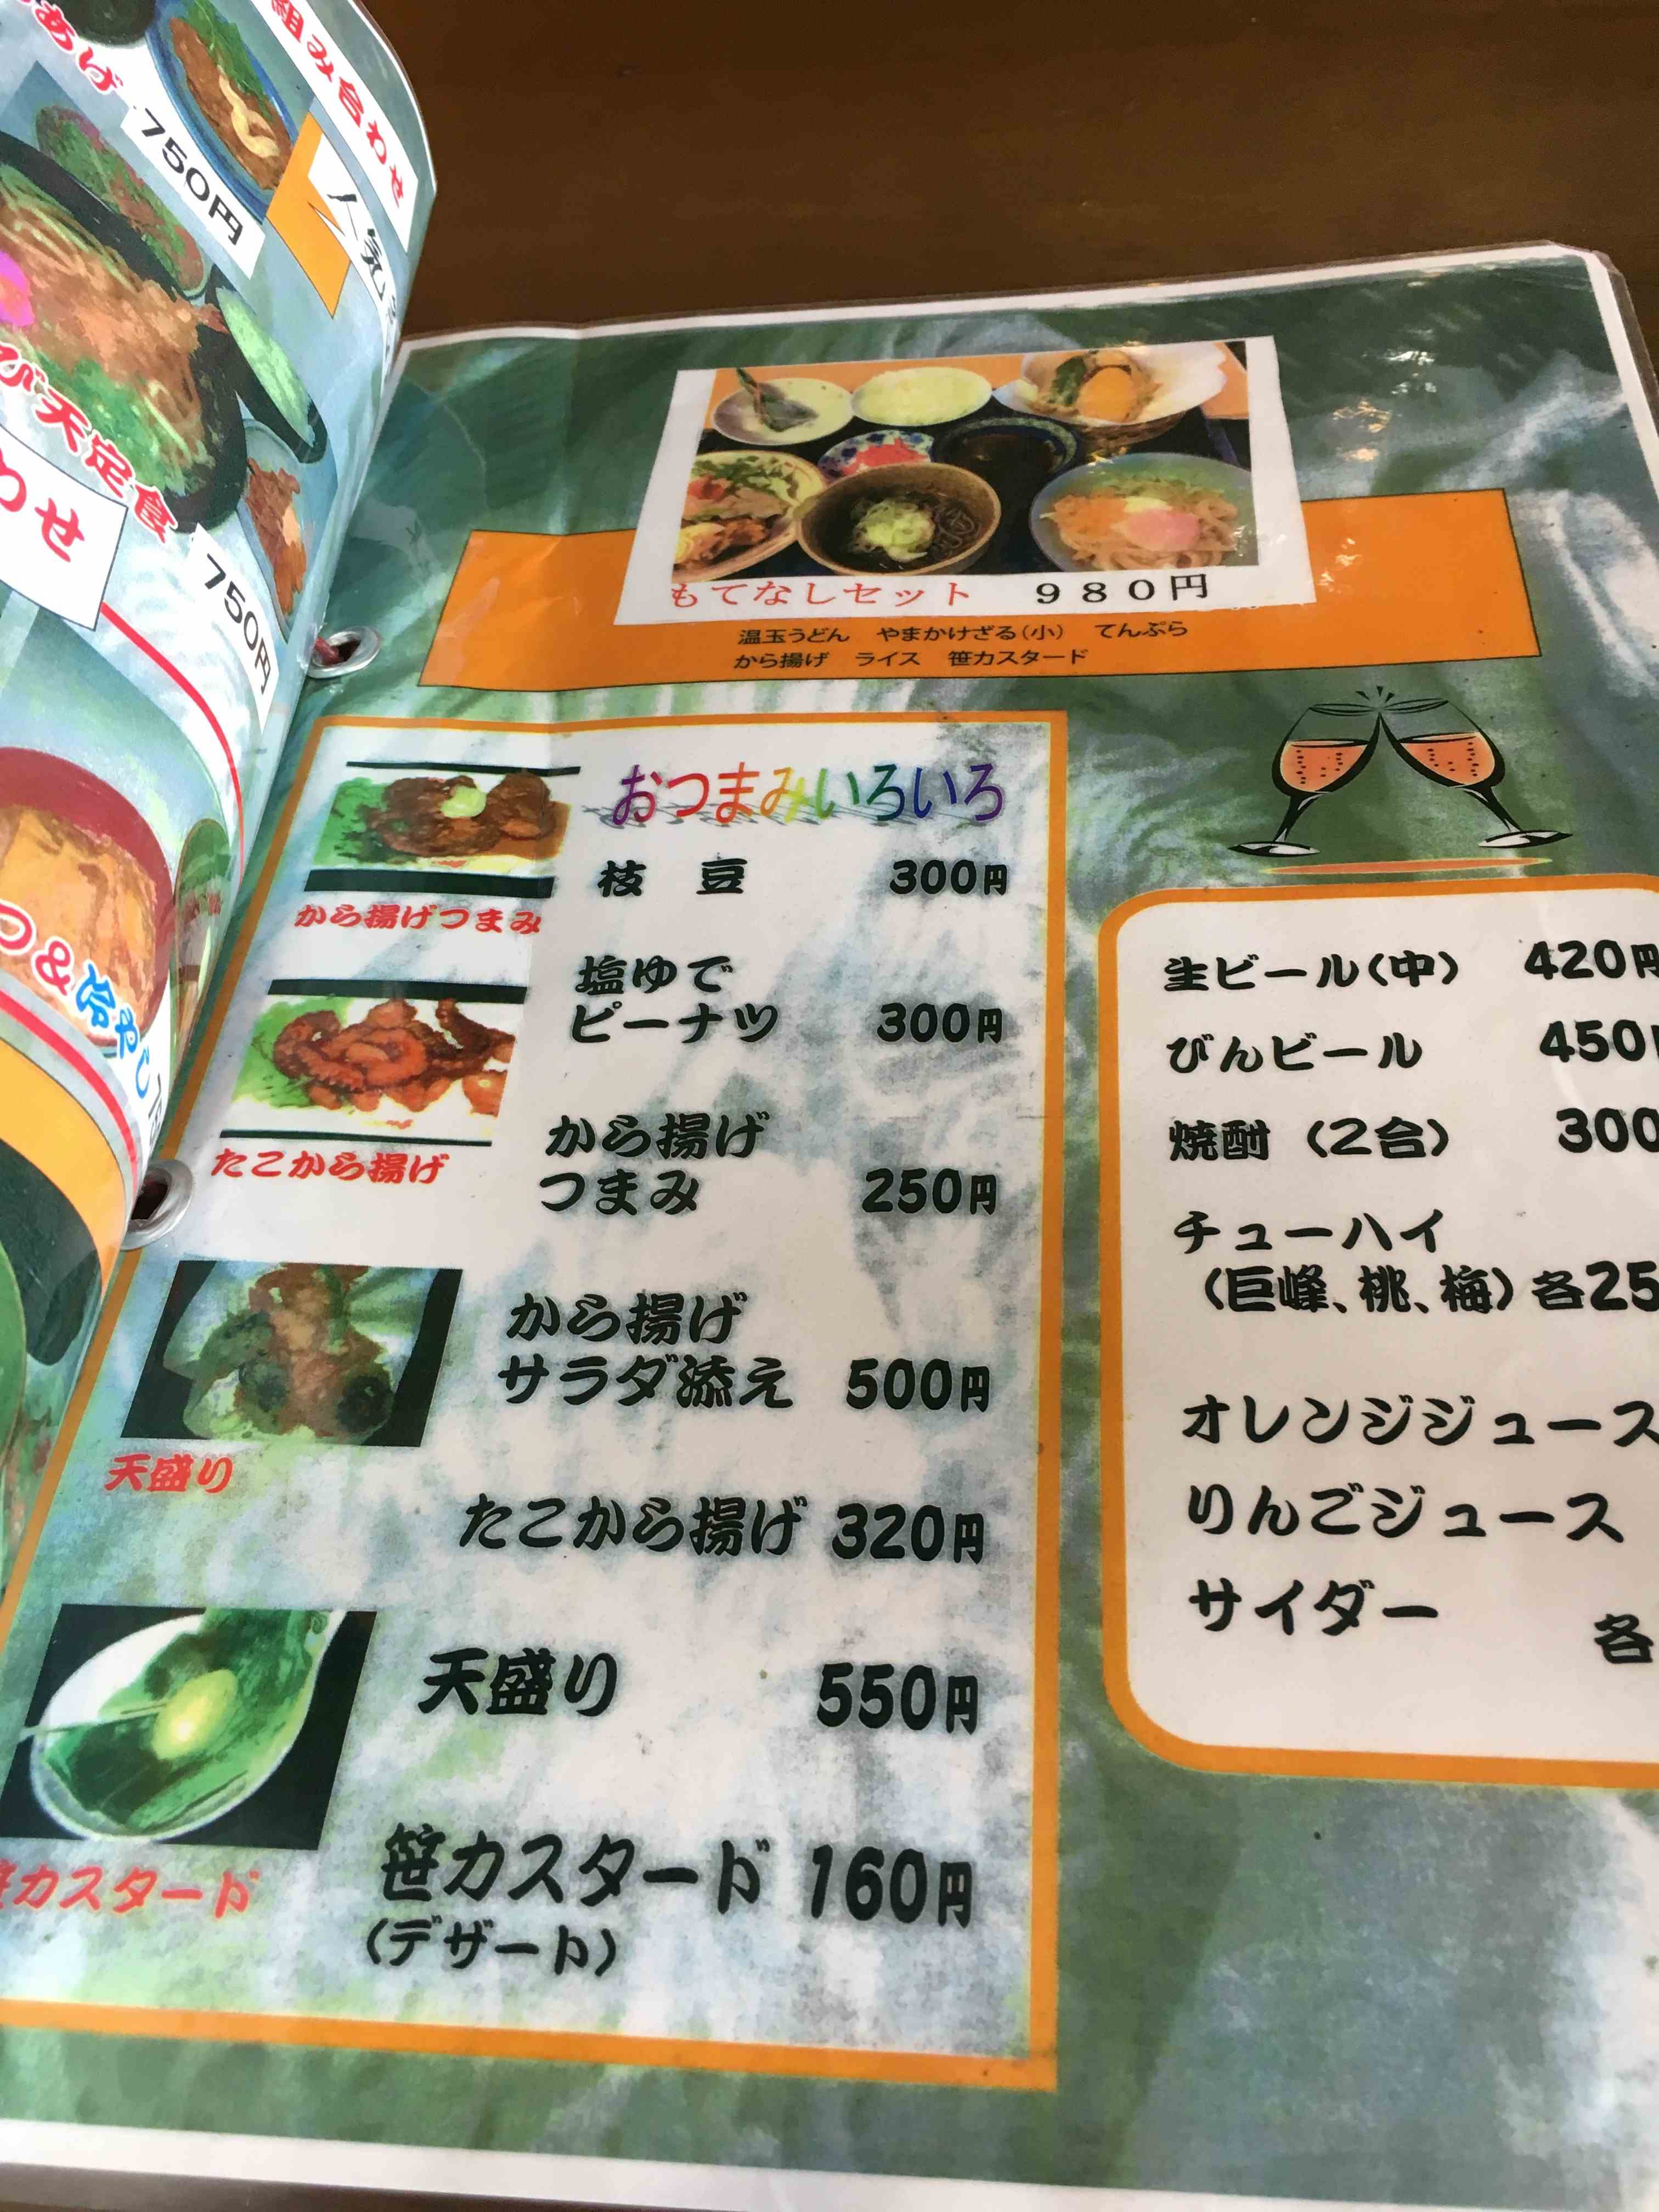 組み合わせ
あげ
750円
人気
び天定食
わせ
750円
つ&冷やし
もてなしセット 980円
温玉うどん やまかけざる(小) てんぷら
から揚げ ライス 笹カスタード
おつまみいろいろ
枝 豆 300円
から揚げつまみ
塩ゆで
ピーナツ 300円
から揚げ
つまみ 250円
たこから揚げ
から揚げ
サラダ添え 500円
天盛り
たこから揚げ 320円
天盛り 550円
笹カスタード 160円
(デザート)
カスタード
生ビール(中) 420円
びんビール 450
焼酎 (2合) 300
チューハイ
(巨峰、桃、梅) 各25
オレンジジュース
りんごジュース
サイダー
各